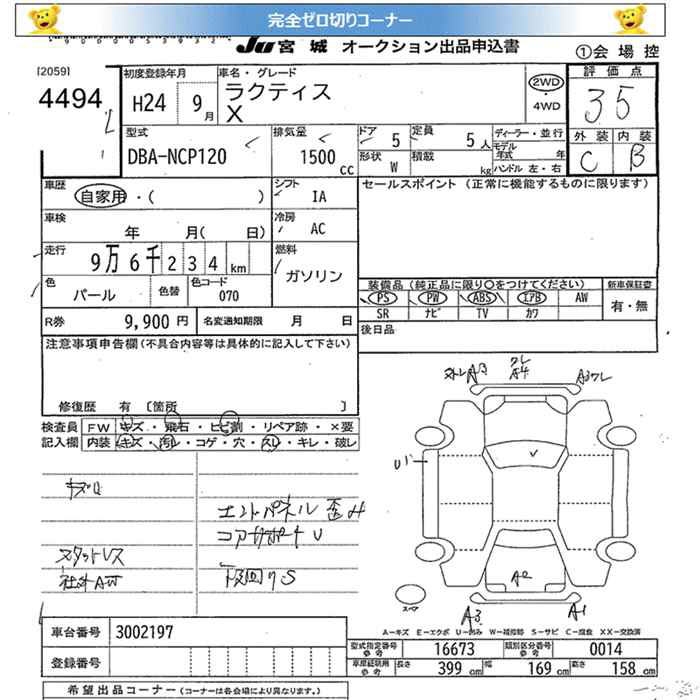 完全ゼロ切りコーナー
JU 宮城 オークション出品申込書
①会場控
[2059]
4494
初度登録年月
H24 9月
車名・グレード
ラクティス
X
2WD
・
4WD
評価点
35
外装 内装
C B
型式
DBA-NCP120
排気量
1500 cc
ドア 5
定員 5人
形状 W
積載 kg
ディーラー・並行
モデル年式 年
ハンドル 左・右
車歴
自家用・( )
シフト
IA
車検
年 月( 日)
冷房
AC
走行
9万6千234km
燃料
ガソリン
色
パール
色替
色コード
070
R券
9,900円
名変通知期限 月 日
セールスポイント (正常に機能するものに限ります)
装備品 (純正品に限り○をつけてください)
新車保証書
PS PW ABS エアB AW
SR ナビ TV カワ
有・無
後日品
注意事項申告欄(不具合内容等は具体的に記入して下さい)
修復歴 有 〔箇所 〕
検査員記入欄
FW キズ・飛石・ヒビ割・リペア跡・×要
内装 キズ・汚れ・コゲ・穴・スレ・キレ・破レ
キズ
エンドパネル 歪み
コアサポート U
スタットレス
社外AW
下回り S
A3
クレ
A4
U1
A2
スペア
A3
A1
A-キズ E-エクボ U-凹み W-補修跡 S-サビ C-腐食 XX-交換済
車台番号 3002197
登録番号
型式指定番号 参考 16673
類別区分番号 参考 0014
車庫証明用 参考 長さ 399 cm 幅 169 cm 高さ 158 cm
希望出品コーナー (コーナーは各会場により異なります。)